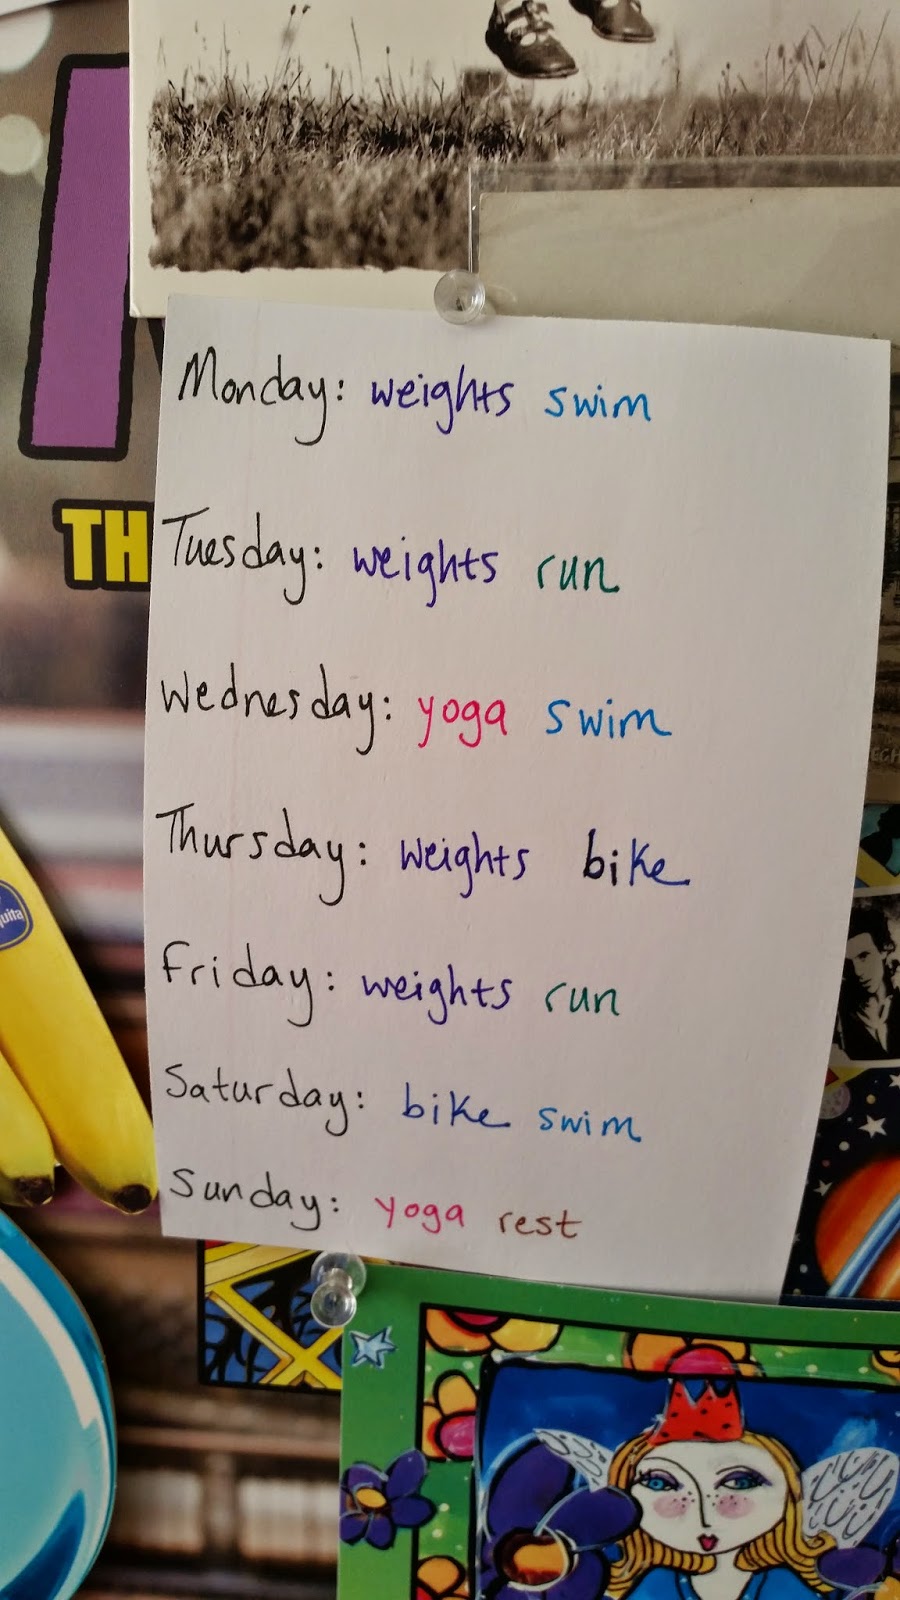 TH
Monday: weights swim
Tuesday: weights run
Wednesday: yoga swim
Thursday: weights bike
Friday: weights run
Saturday: bike swim
Sunday: yoga rest